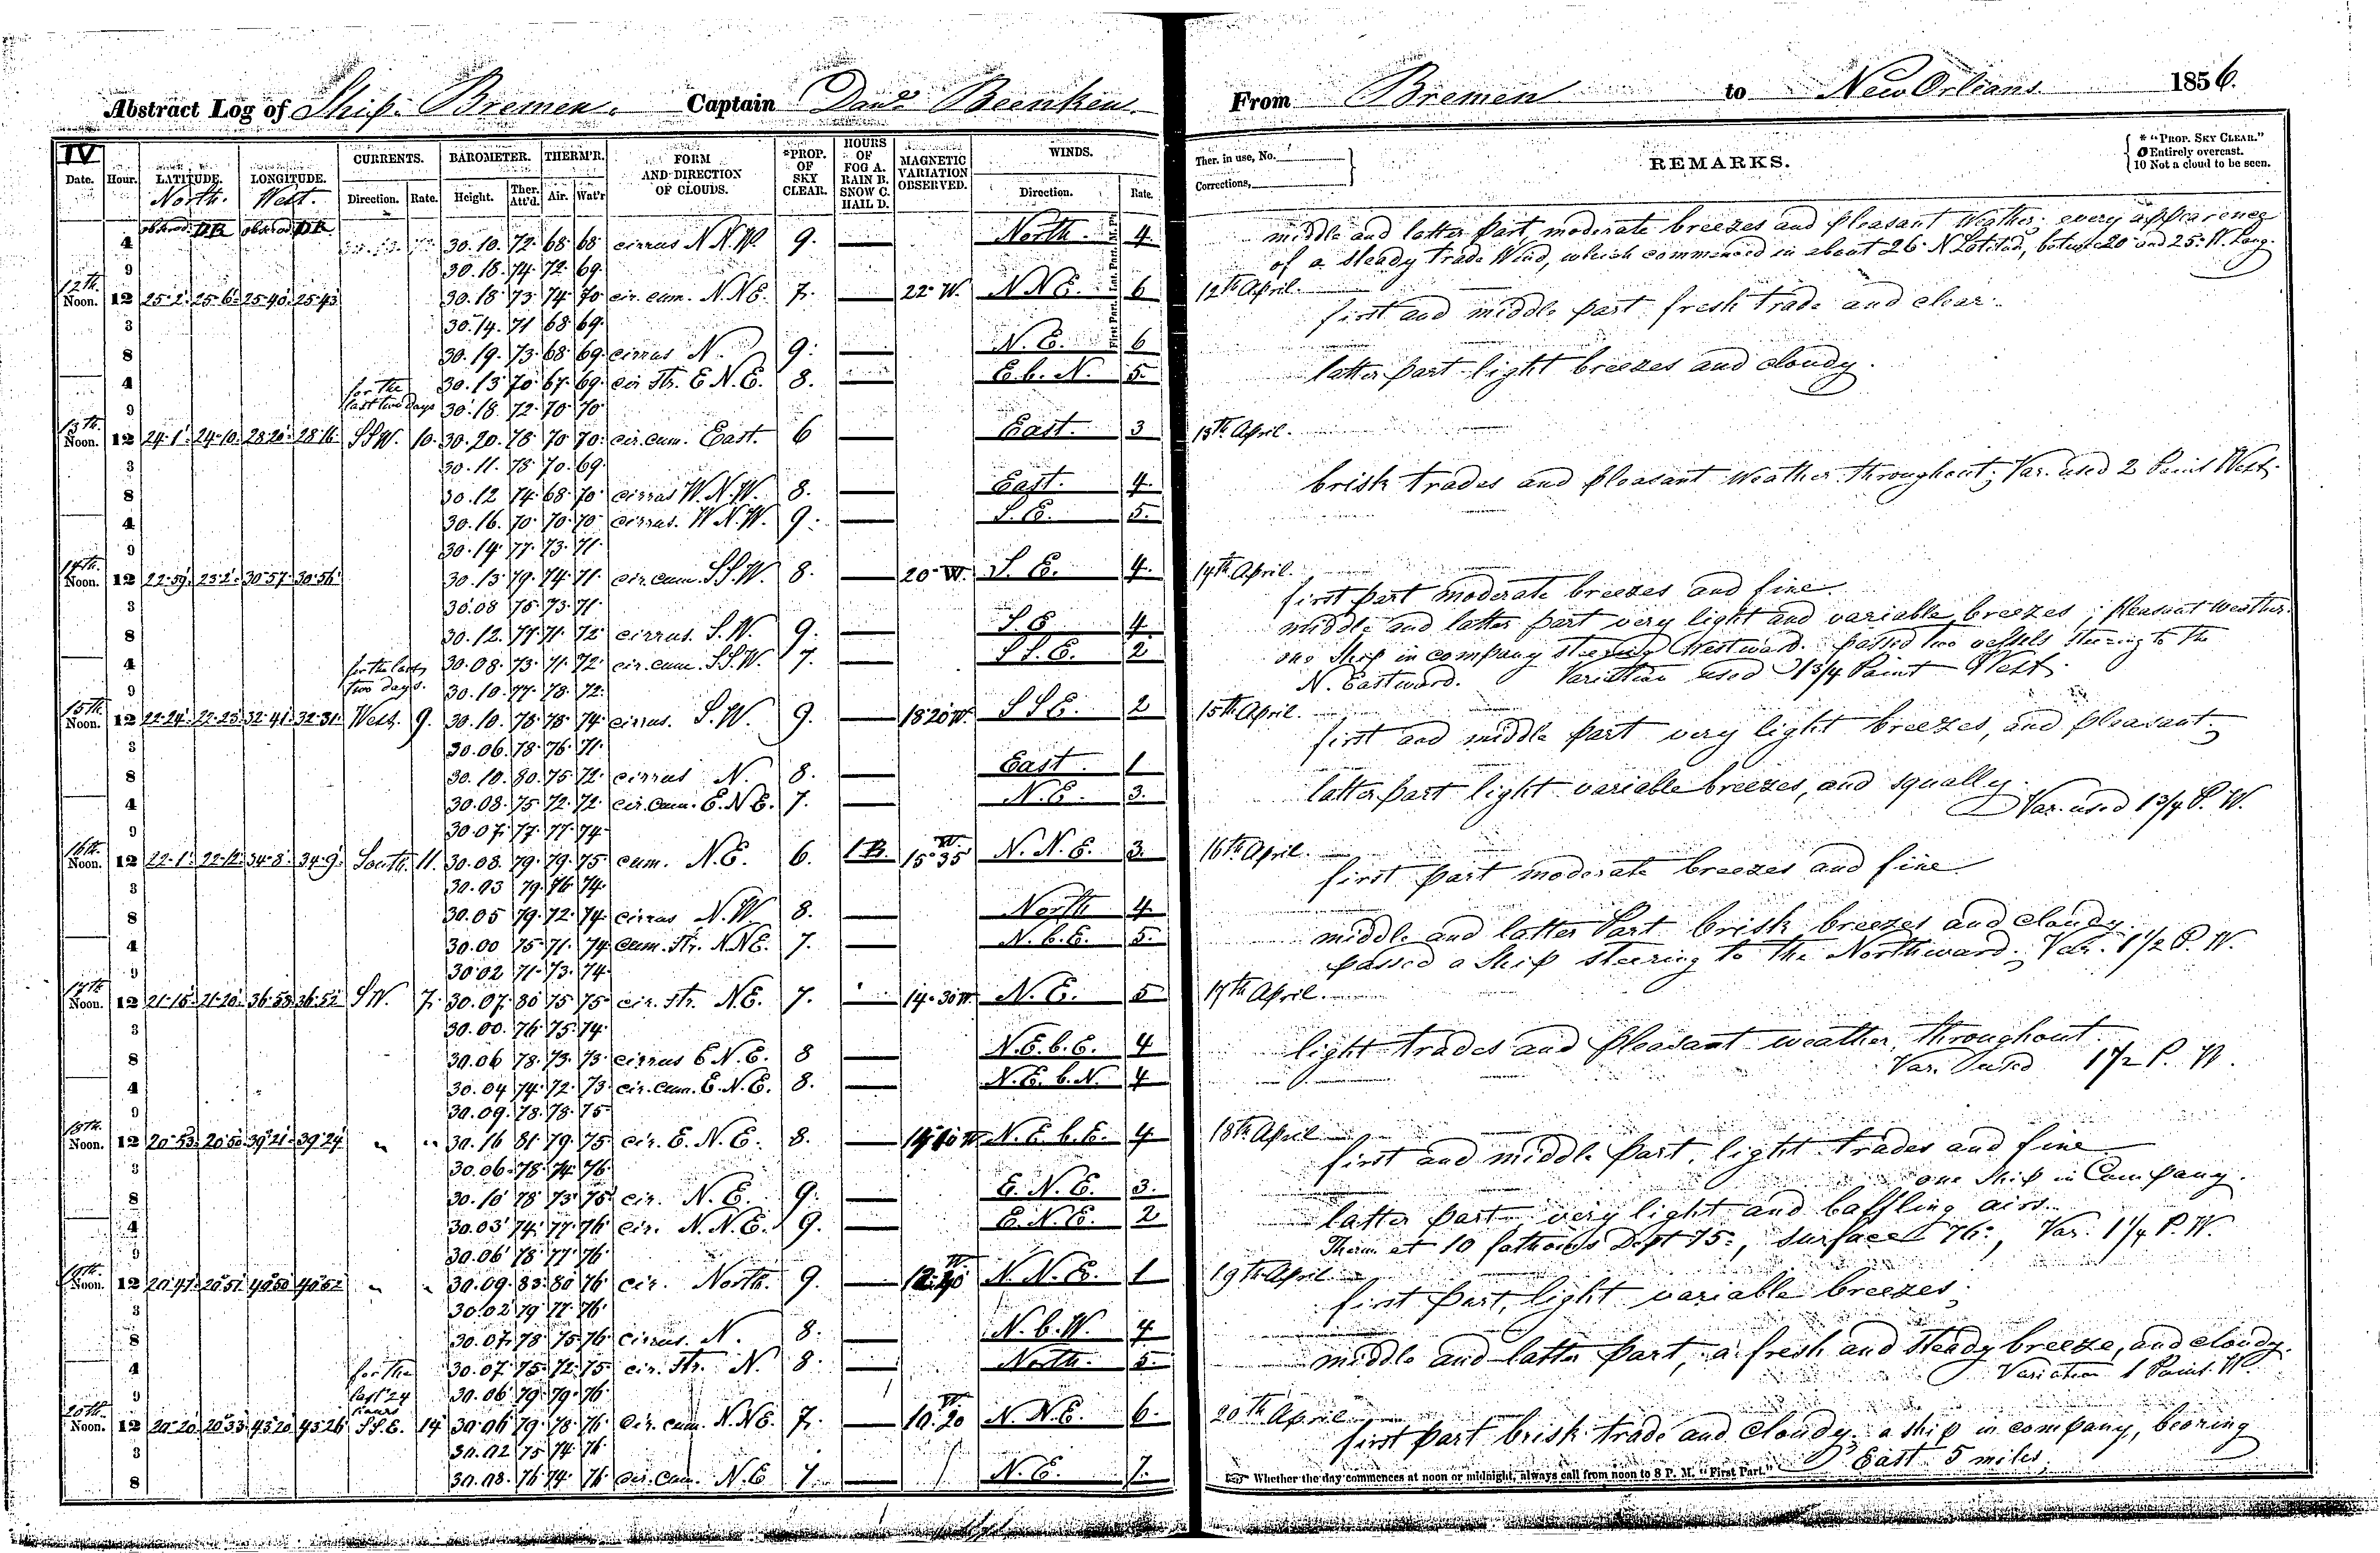 Abstract Log of Ship Bremen. Captain Beenken. From Bremen to New Orleans 1856.
IV
Date. Hour. LATITUDE. North. LONGITUDE. West. CURRENTS. Direction. Rate. BAROMETER. Height. Ther. Att'd. THERM'R. Air. Wat'r FORM AND DIRECTION OF CLOUDS. *PROP. OF SKY CLEAR. HOURS OF FOG A. RAIN B. SNOW C. HAIL D. MAGNETIC VARIATION OBSERVED. WINDS. Direction. Rate.
Ther. in use, No. Corrections, REMARKS. * "PROP. SKY CLEAR." 0 Entirely overcast. 10 Not a cloud to be seen.
obsvd DR obsvd DR
4 30.10. 72. 68. 68 cirrus N.N.W. 9. North. 4
9 30.18. 74. 72. 69.
12th Noon. 12 25-2' 25-6' 25-40' 25-43' 30.18 73 74 70 cir. cum. N.N.E. 7. 22° W. N N E. 6
3 30.14. 71 68. 69.
8 30.19. 73. 68. 69. cirrus N. 9. N. E. 6
4 for the last two days 30.13 70 67. 69. cir Str. E N.E. 8. E. b. N. 5.
9 30.18. 72. 70. 70.
13th Noon. 12 24-1' 24-10' 28-20' 28-16' SSW. 10. 30.20. 78 70 70. cir. cum. East. 6 East. 3
3 30.11. 78. 70. 69.
8 30.12 74. 68. 70 cirrus W.N.W. 8. East. 4.
4 30.16. 70. 70. 70 cirrus. W N.W. 9. S. E. 5.
9 30.14. 77. 73. 71.
14th Noon. 12 22-59' 23-2' 30-57' 30-56' 30.13 79. 74. 71. cir. cum. S.S.W. 8. 20° W. S. E. 4.
3 30.08 75. 73. 71.
8 30.12. 77. 71. 72 cirrus. S.W. 9. S. E 4
4 for the last two days. 30.08. 73. 71. 72. cir. cum. S.S.W. 7. S S. E. 2
9 30.10. 77. 78. 72.
15th Noon. 12 22-24' 22-23' 32-41' 32-31' West. 9. 30.10. 78. 78. 74 cirrus. S.W. 9. 18°20' W. S S E. 2
3 30.06. 78. 76. 71.
8 30.10. 80. 75. 72. cirrus N. 8. East. 1
4 30.08. 75. 72. 72. cir. cum. E.N.E. 7. N. E. 3.
9 30.07. 77. 77. 74.
16th Noon. 12 22-1' 22-12' 34-8' 34-9' South. 11. 30.08. 79. 79. 75 cum. N.E. 6. 1 B. 15°35' W. N. N. E. 3.
3 30.03 79. 76 74.
8 30.05 79. 72. 74. cirrus N.W. 8. North 4
4 30.00 75. 71. 74 cum. Str. N.N.E. 7. N. b. E. 5.
9 30.02 71. 73. 74.
17th Noon. 12 21-15' 21-20' 36-53' 36-52' SW. 7. 30.07. 80 75 75 cir. Str. N.E. 7. 14-30 W. N. E. 5
3 30.00. 76. 75. 74.
8 30.06 78. 73. 73 cirrus E N.E. 8 N. E. b. E. 4
4 30.04 74. 72. 73 cir. cum. E.N.E. 8. N. E. b. N. 4
9 30.09. 78. 78. 75
18th Noon. 12 20-53' 20-50' 39-21' 39-24' " " 30.16 81. 79. 75 cir. E.N.E. 8. N. E. b. E. 4
3 30.06. 78. 74. 76.
8 30.10 78 73 75 cir. N.E. 9. E. N. E. 3.
4 30.03 74. 77. 76 cir. N.N.E. 9. E. N. E. 2
9 30.06 78 77 76
19th Noon. 12 20-47' 20-51' 40-50' 40-52' " " 30.09. 83. 80 76 cir. North. 9. W. N. N. E. 1
3 30.02 79 77. 76
8 30.07. 78 75 76 cirrus. N. 8. N. b. W. 4
4 for the last 24 hours 30.07 75. 72. 75 cir. Str. N. 8. North. 5.
9 30.06 79. 79. 76
20th Noon. 12 20-20' 20-33' 43-20 43-26 S.S.E. 14 30.06 79. 78. 76 cir. cum. N.N.E. 7. 10.20 W. N. N. E. 6.
3 30.02 75 74 76
8 30.08. 76 74. 76 cir. cum. N.E 7. N. E. 7.
First Part. Lat. Part. M. Pt
middle and latter part moderate breezes and pleasant Weather. every appearence
of a steady trade Wind, which commenced in about 26° N Latitud, betwe 20 and 25° W. Long.
12th April.
first and middle part fresh trade and clear.
latter part light breezes and cloudy.
13th April.
brisk trades and pleasant weather throughout; Var. used 2 Point West.
14th April.
first part moderate breezes and fine.
middle and latter part very light and variable breezes; pleasant weather.
one Ship in company steering Westward. passed two vessels steering to the
N. Eastward. Variation used 1 3/4 Point West.
15th April.
first and middle part very light breezes, and pleasant.
latter part light variable breezes, and squally.
Var. used 1 3/4 P. W.
16th April.
first part moderate breezes and fine
middle and latter Part brisk breezes and cloudy.
passed a Ship steering to the Northward; Var. 1 1/2 P. W.
17th April.
light trades and pleasant weather throughout.
Var. used 1 1/2 P. W.
18th April
first and middle part, light trades and fine
one Ship in Company.
latter part very light and baffling airs.
Therm. at 10 fathoms Dept 75°, surface 76°, Var. 1 1/4 P. W.
19th April
first part, light variable breezes;
middle and latter part, a fresh and steady breeze, and cloudy.
Variation 1 Point W.
20th April
first part brisk trade and cloudy. a ship in company, bearing
East 5 miles.
Whether the day commences at noon or midnight, always call from noon to 8 P. M. "First Part."